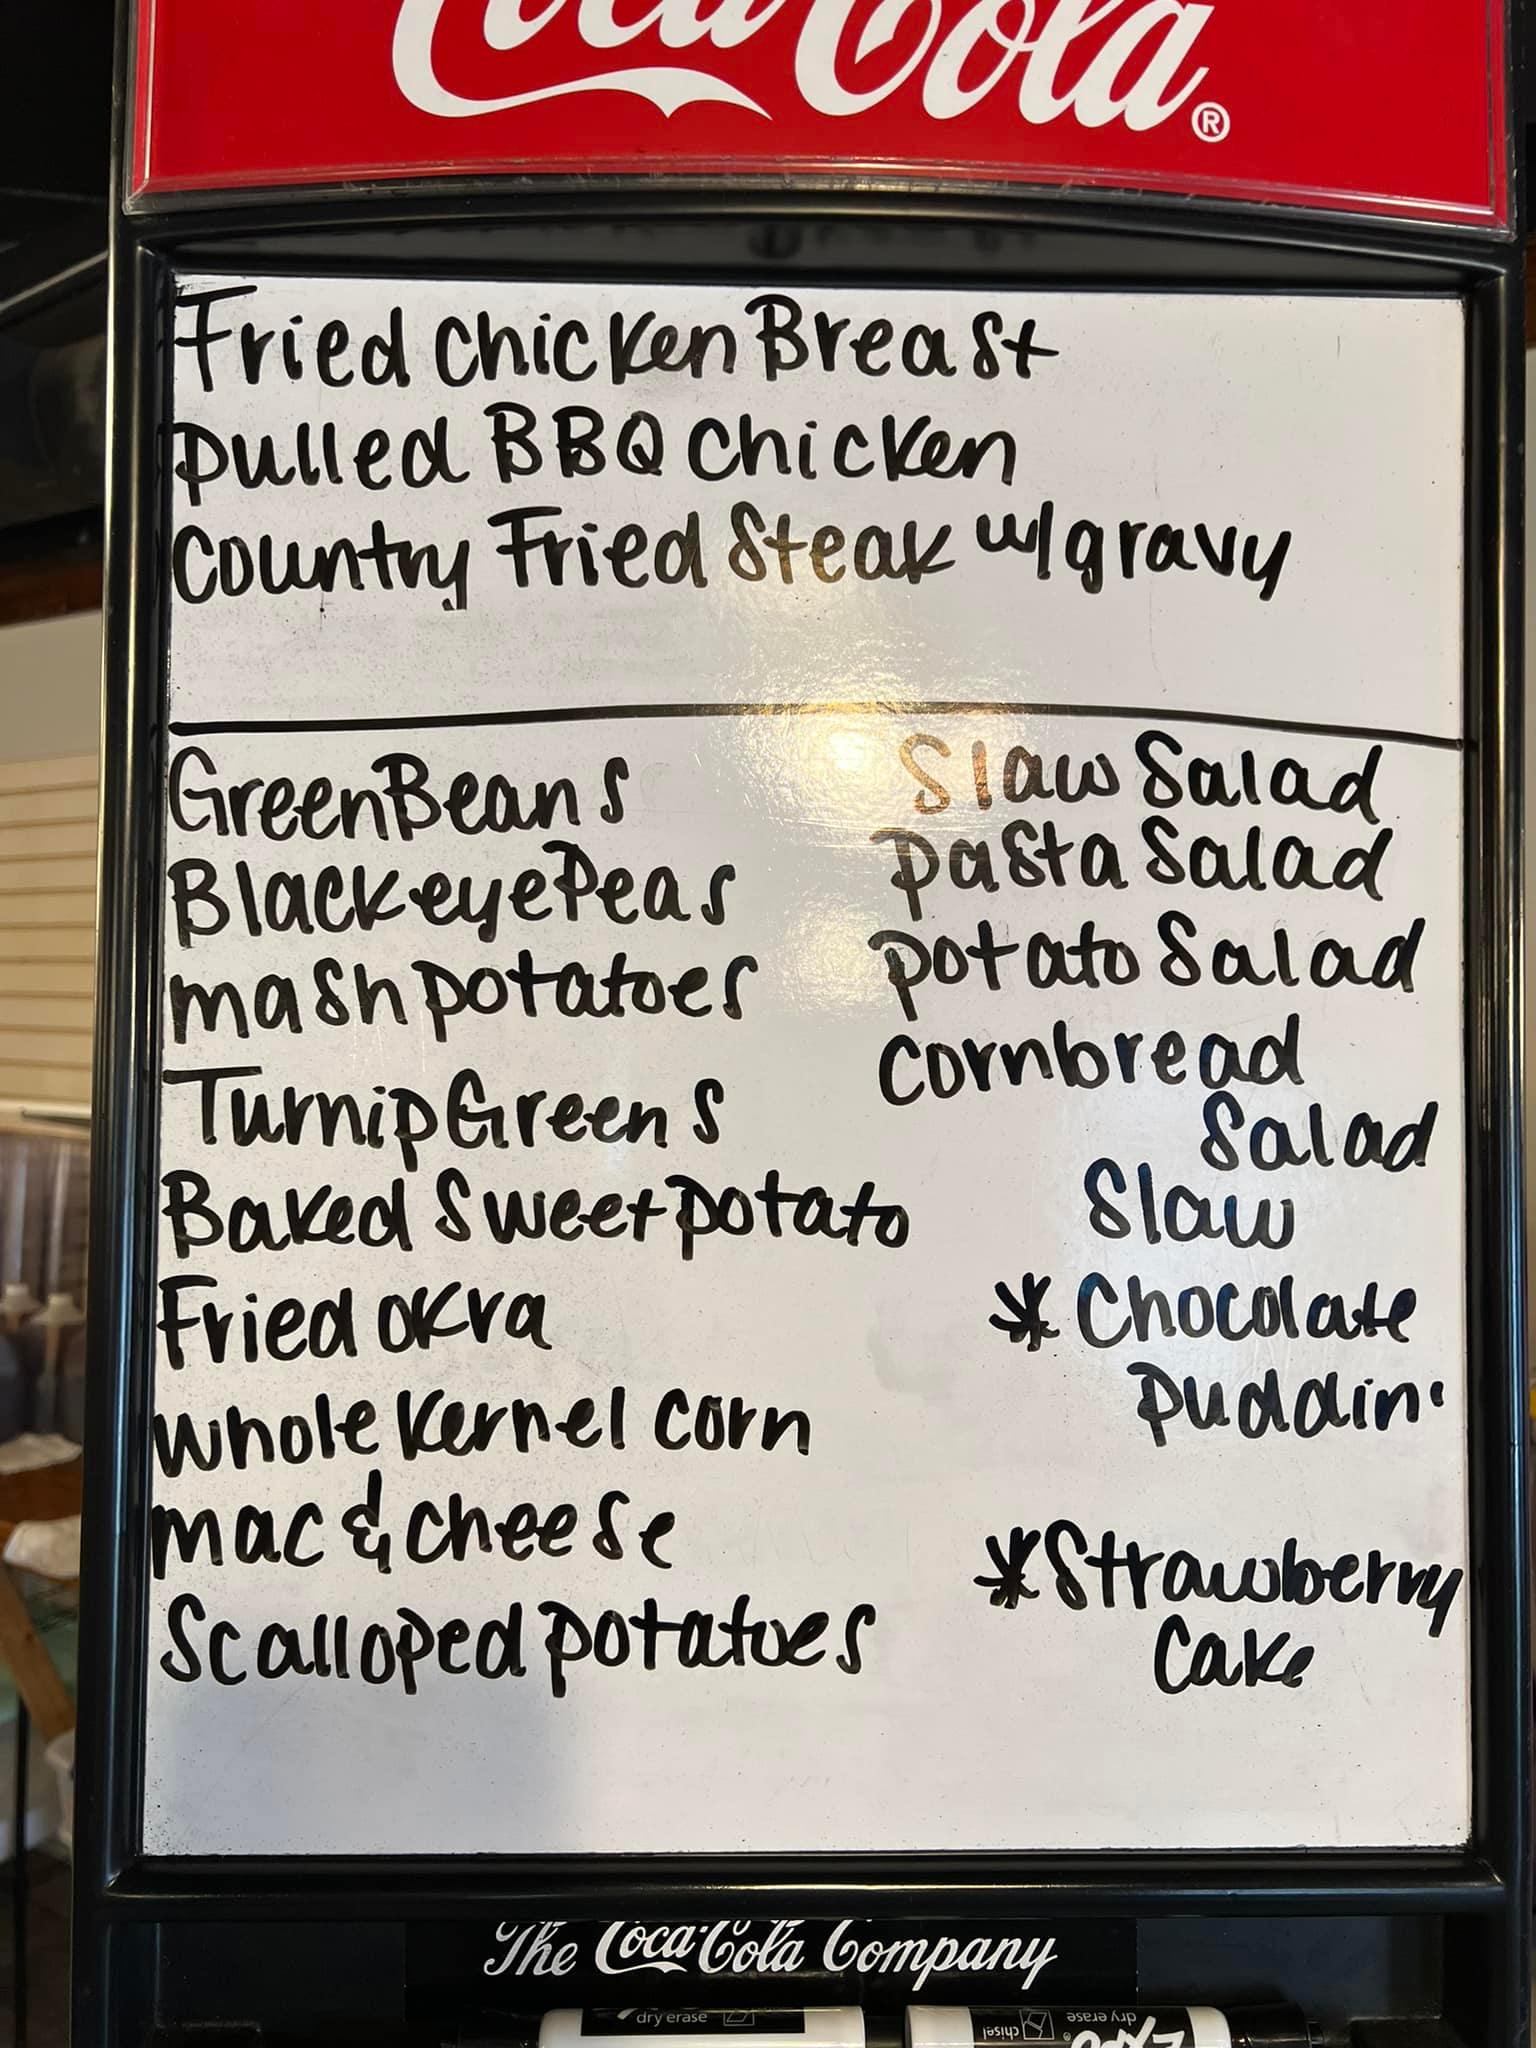 Coca-Cola®
Fried Chicken Breast
Pulled BBQ Chicken
Country Fried Steak w/gravy
Green Beans
Blackeye Peas
mash potatoes
Turnip Greens
Baked Sweet potato
Fried okra
whole Kernel corn
mac & cheese
Scalloped potatoes
Slaw Salad
Pasta Salad
potato Salad
cornbread
Salad
Slaw
* Chocolate
Puddin'
* Strawberry
Cake
The Coca-Cola Company
dry erase
chisel
dry erase
EXPO®